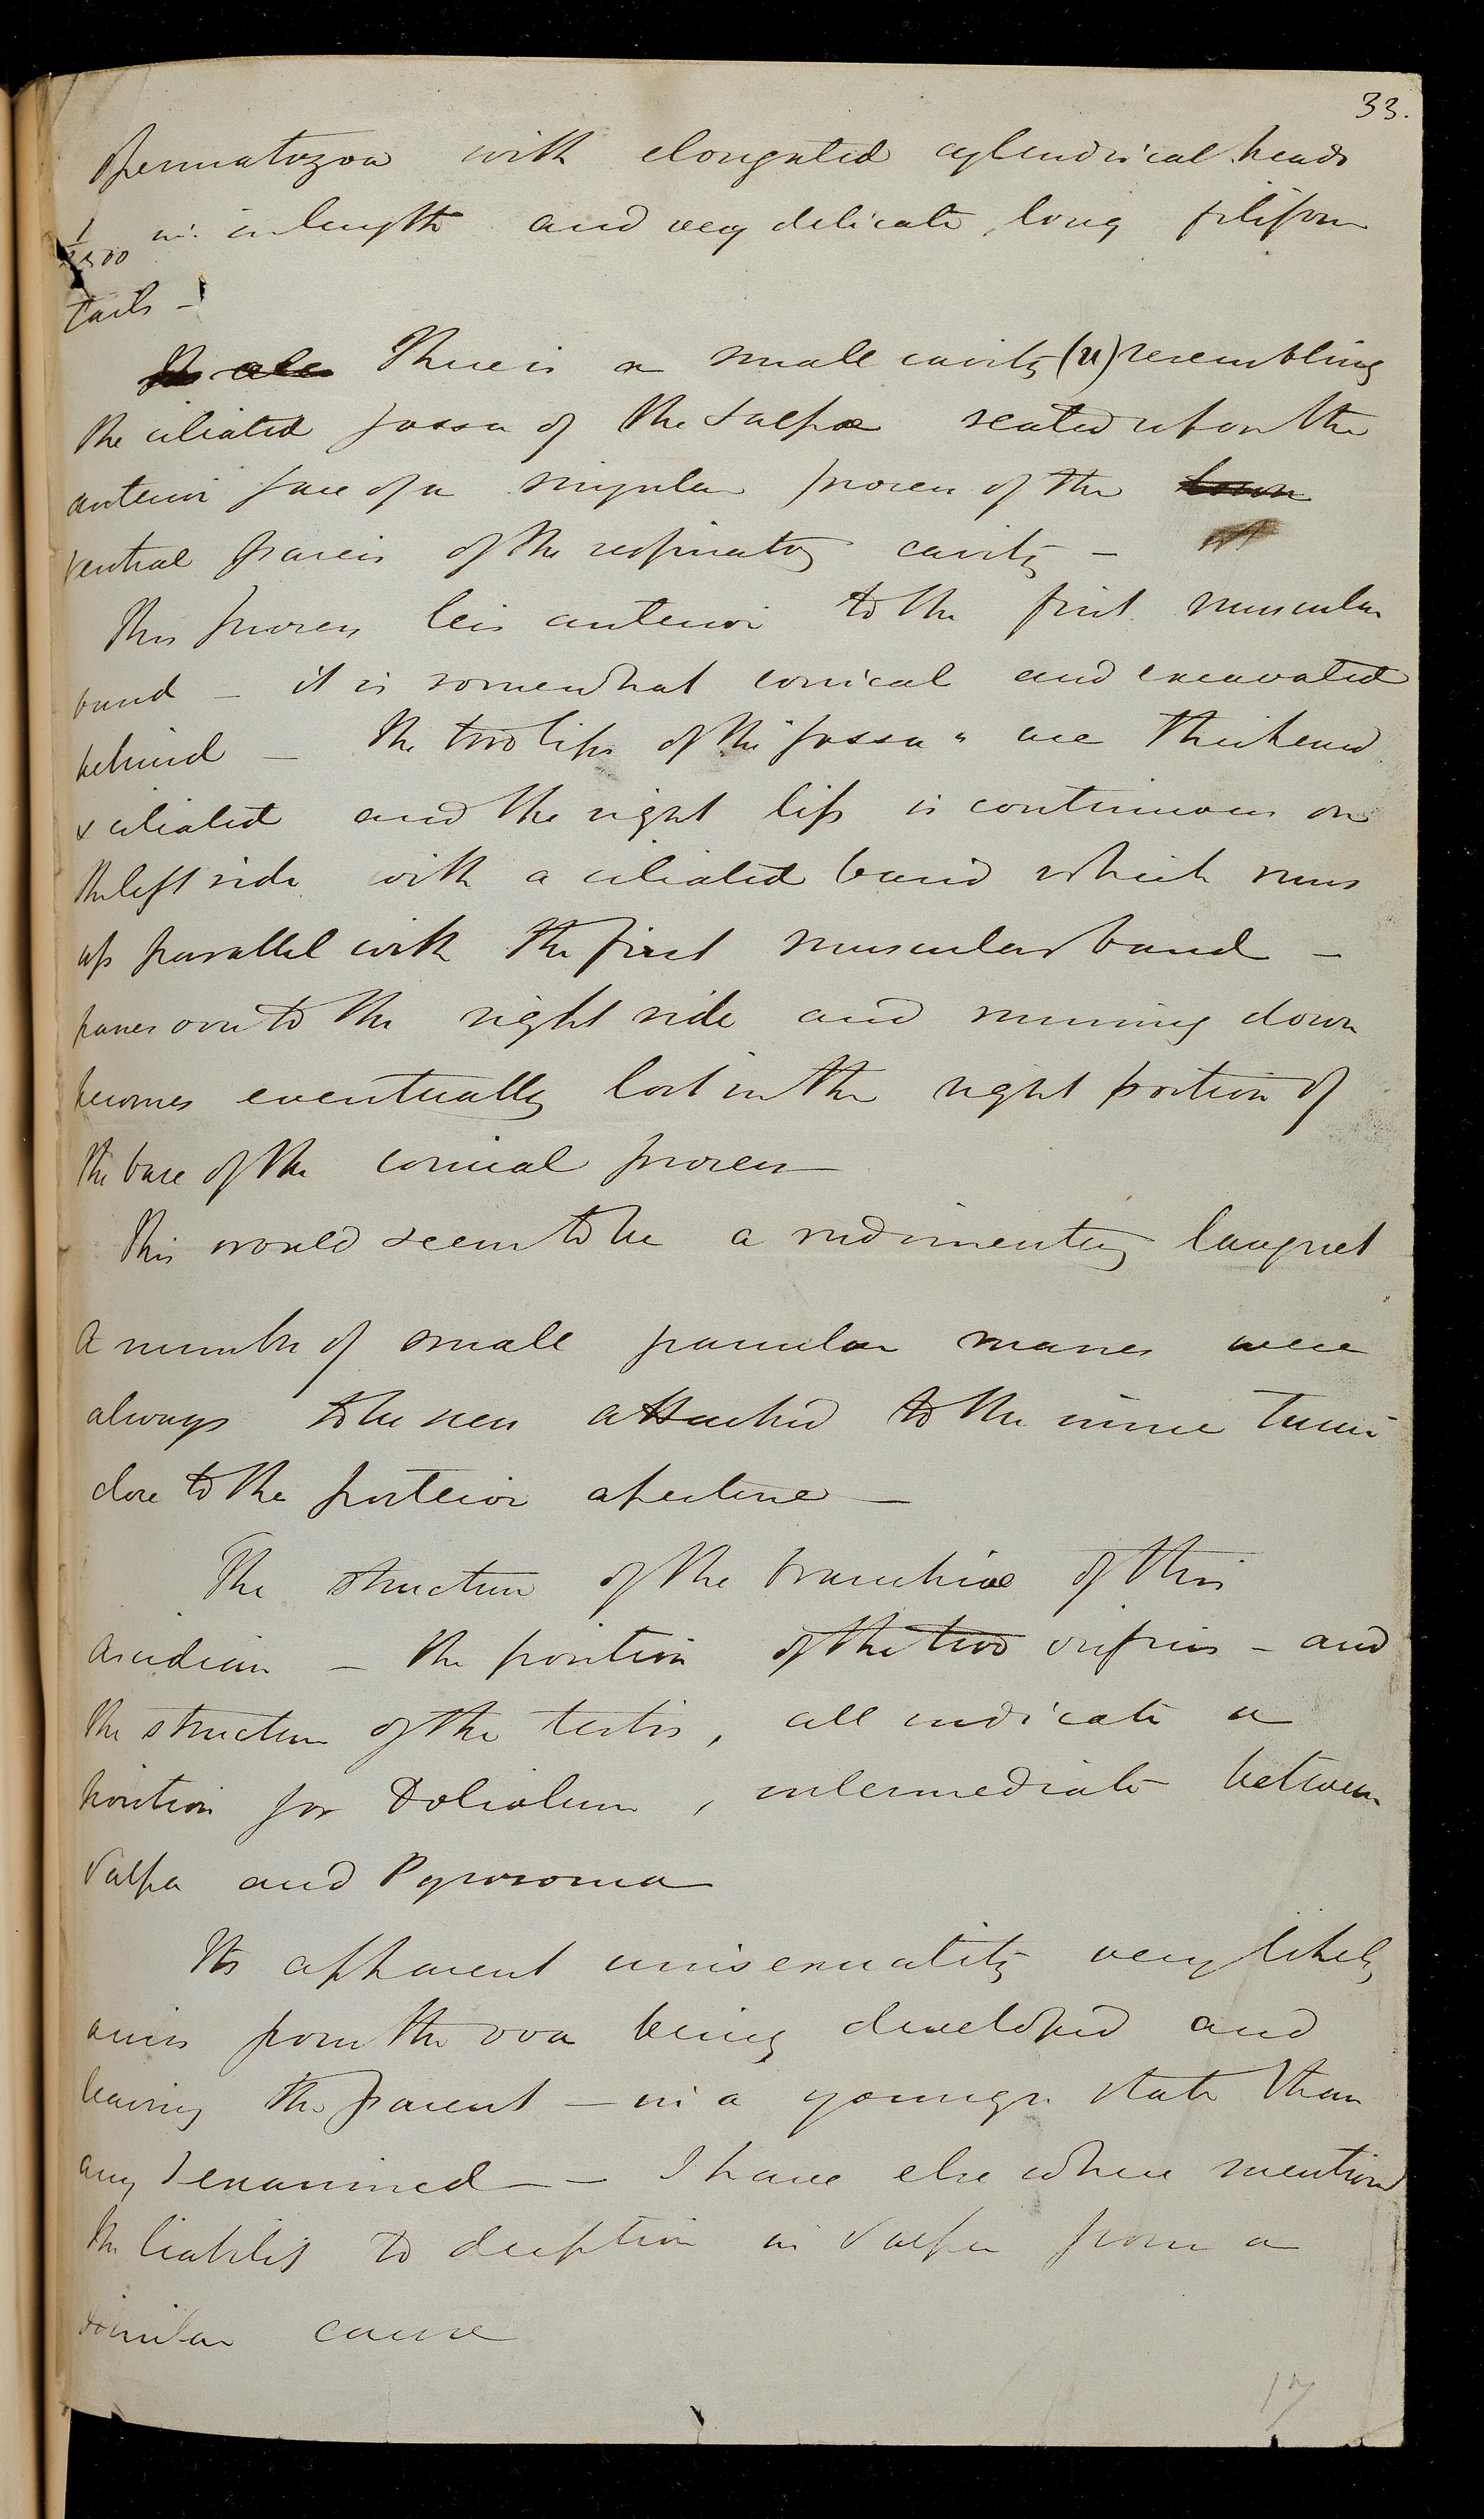 33.
Spermatozoa with elongated cylindrical heads
in: in length and very delicate, long filiform
tails –
There is a small cavity (u) resembling
the ciliated fossa of the Salpæ seated upon the
anterior face of a singular process of the
ventral parieis of the respiratory cavity –
This process lies anterior to the first muscular
band – it is somewhat conical and excavated
behind – The two lips of the "fossa" are thickened
& ciliated and the right lip is continuous on
the left side with a ciliated band which runs
up parallel with the first muscular band –
passes over to the right side and running down
becomes eventually lost in the right portion of
the base of the conical process –
This would seem to be a rudimentary languet
A number of small granular masses were
always to be seen attached to the inner tunic
close to the posterior aperture –
The structure of the branchiae of this
Ascidian – the position of the two orifices – and
the structure of the testis, all indicate a
position for Doliolum, intermediate between
Salpa and Pyrosoma
Its apparent unisexuality very likely
arises from the ova being developed and
leaving the parent – in a younger state than
any I examined – – I have elsewhere mentioned
the liability to deception in Salpa from a
similar cause
17